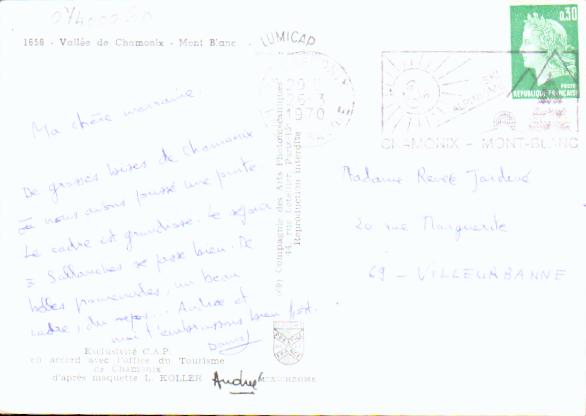 04400260
1656 - Vallée de Chamonix - Mont Blanc
LUMICAP
0,30
POSTES
REPUBLIQUE FRANÇAISE
1970
SKI
ALPINISME
CHAMONIX - MONT-BLANC
Ma chère marraine.
De grosses bises de Chamonix
où nous avons poussé une pointe
Le cadre est grandiose. Le séjour
à Sallanches se passe bien. De
belles promenades, un beau
cadre, du repos... Andrée et
moi t'embrassons bien fort.
Andrée
Compagnie des Arts Photomécaniques
44, rue Letellier, Paris-15e
Reproduction interdite
Madame Renée Jardiné
20 rue Marguerite
69 - VILLEURBANNE
Exclusivité C.A.P.
en accord avec l'office du Tourisme
de Chamonix
d'après maquette L. KOLLER
MEXICHROME